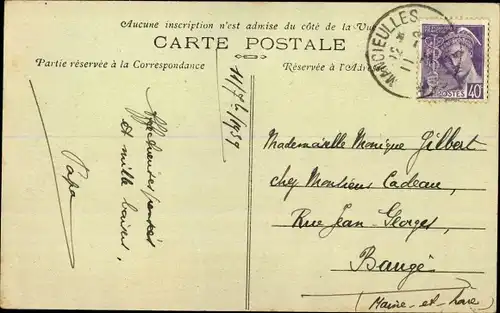 Aucune inscription n'est admise du côté de la Vue
CARTE POSTALE
Partie réservée à la Correspondance
Réservée à l'Adre
POSTES 40
11/7/1939
Affectueuses pensées
et mille baisers,
Papa
Mademoiselle Monique Gilbert
chez Monsieur Cadeau,
Rue Jean-Georges,
Baugé
(Maine-et-Loire)